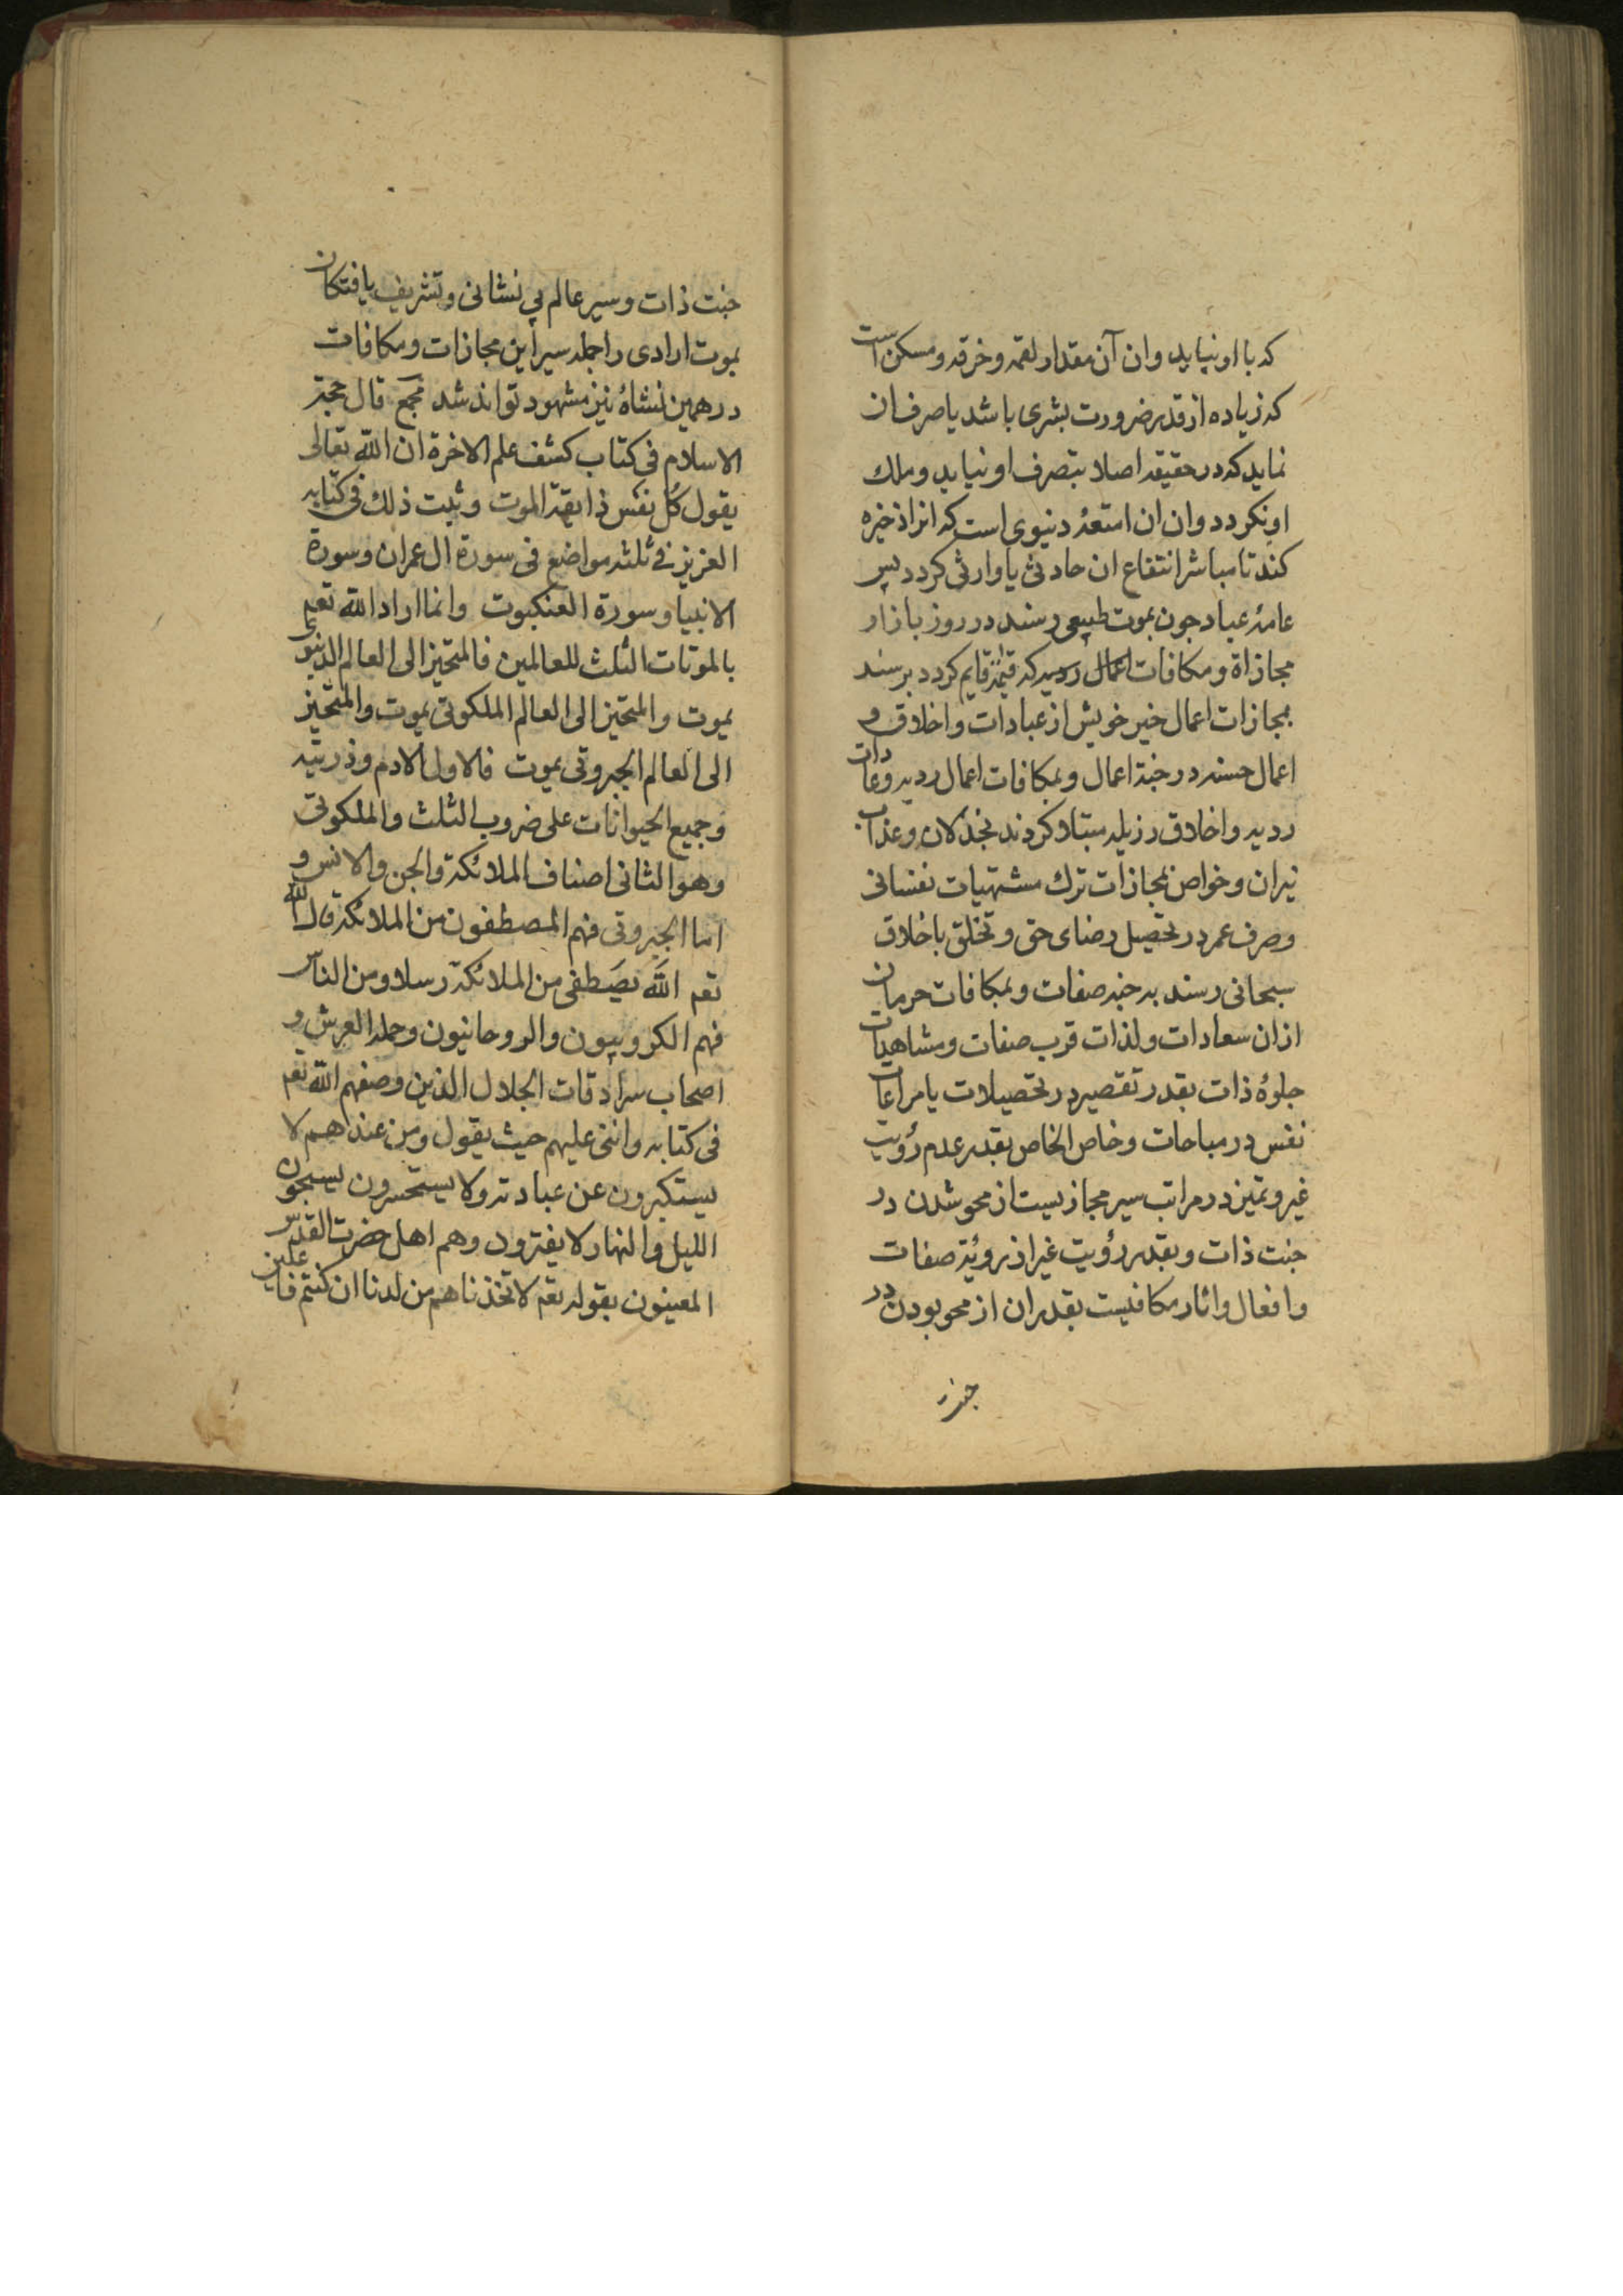 که با او نیاید وان آن مقدار لقمه و خرقه و مسکن است
که زیاده از قدر ضرورت بشری باشد یا صرف ان
نماید که در حقیقه اصلا بتصرف او نیاید و ملک
او نکردد وان ان امتعهٔ دنیوی است که انرا ذخیره
کند تا مباشر انتفاع ان حادثی یا وارثی کردد پس
عامهٔ عباد جون بموت طبیعی رسند در روز بازار
مجازاة و مکافات اعمال که قیمة قایم کردد برسند
بمجازات اعمال خیر خویش از عبادات و اخلاق و
اعمال حسنه در جنة اعمال و بمکافات اعمال ردیه و عادات
ردیه و اخلاق رزیله مبتلا کردند بخذلان و عذاب
نیران و خواص بمجازات ترک مشتهیات نفسانی
و صرف عمر در تحصیل رضای حق و تخلق باخلاق
سبحانی رسند به جنة صفات و بمکافات حرمان
ازان سعادات و لذات قرب صفات و مشاهدات
جلوهٔ ذات بقدر تقصیر در تحصیلات یا مراعات
نفس در مباحات و خاص الخاص بقدر عدم رؤیت
غیر و تمیز در مراتب سیر مجازیست از محو شدن در
جنت ذات و بقدر رؤیت غیر از رویة صفات
و افعال و اثار مکافیست بقدر ان از محو بودن در
جنت
جنت ذات و سیر عالم بی نشانی و تشریف یافتکان
بموت ارادی را جمله سیر این مجازات و مکافات
در همین نشاهٔ نیز مشهود تواند شد قال حجة
الاسلام فی کتاب کشف علم الاخرة ان الله تعالی
یقول کل نفس ذایقة الموت و ثبت ذلك فی کتابه
العزیز فی ثلثه مواضع فی سورة ال عمران و سورة
الانبیا و سورة العنکبوت وانما اراد الله تعم
بالموتات الثلث للعالمین فالمتحیز الی العالم الدنیوی
یموت والمتحیز الی العالم الملکوتی یموت والمتحیز
الی العالم الجبروتی یموت فالاول الادم و ذریته
و جمیع الحیوانات علی ضروب الثلث والملکوتی
وهو الثانی اصناف الملائکة والجن والانس و
اما الجبروتی فهم المصطفون من الملائکة قال الله
تعم الله یصطفی من الملائکة رسلا و من الناس
فهم الکروبیون والروحانیون و حملة العرش و
اصحاب سرادقات الجلال الذین وصفهم الله تعم
فی کتابه واثنی علیهم حیث یقول و من عنده هم لا
یستکبرون عن عبادته ولا یستحسرون یسبحون
اللیل والنهار لا یفترون وهم اهل حضرت القدس
المعینون بقوله تعم لاتخذناهم من لدنا ان کنتم فاعلین